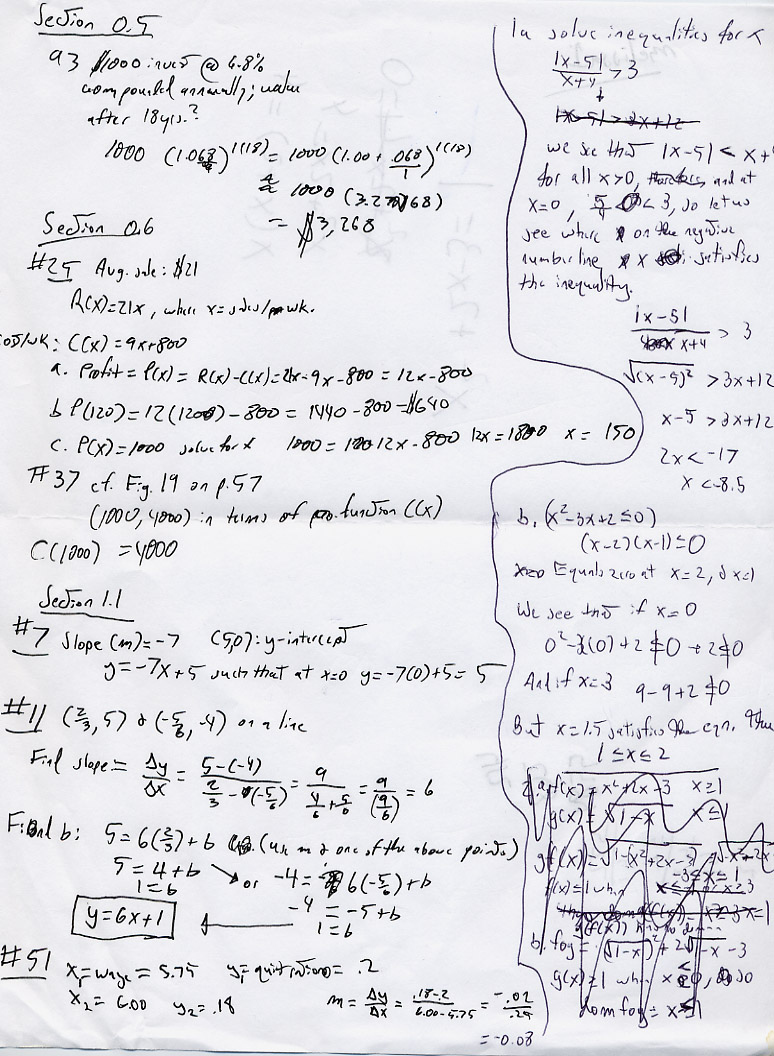 Section 0.5
93 $1000 inves @ 6.8%
compounded annually; value
after 18 yrs.?
1000 (1.068)^1(18) = 1000 (1.00 + .068/1)^1(18)
≈ 1000 (3.268)
= $3,268
Section 0.6
#25 Avg. sale: $21
R(x)=21x, where x=sales/wk.
C(x) = 9x+800
a. Profit = P(x) = R(x)-C(x)=21x-9x-800 = 12x-800
b P(120)=12(120)-800 = 1440-800=$640
c. P(x)=1000 solve for x 1000 = 12x-800 12x=1800 x = 150
#37 cf. Fig. 19 on p.57
(1000, 4000) in terms of function C(x)
C(1000) = 4000
Section 1.1
#7 slope (m)=-7 (5,0): y-intercept
y=-7x+5 such that at x=0 y=-7(0)+5=5
#11 (2/3, 5) & (-5/6, -4) on a line
Find slope = Δy/Δx = 5-(-4) / 2/3-(-5/6) = 9 / 4/6+5/6 = 9/(9/6) = 6
Find b: 5=6(2/3)+b (use m & one of the above points)
5=4+b or -4=6(-5/6)+b
1=b -4=-5+b
y=6x+1 1=b
#51 x₁=wage=5.75 y₁=quit ratio = .2
x₂= 6.00 y₂=.18 m=Δy/Δx = .18-.2 / 6.00-5.75 = -.02/.25
= -0.08
1a solve inequalities for x
|x-5|/x+4 > 3
|x-5| > 3x+12
we see that |x-5| < x+4
for all x>0, and at
x=0, 5/4 < 3, so let us
see where on the negative
number line x satisfies
the inequality.
|x-5|/x+4 > 3
√(x-5)² > 3x+12
x-5 > 3x+12
2x<-17
x<-8.5
b. (x²-3x+2≤0)
(x-2)(x-1)≤0
Equals zero at x=2, & x=1
We see that if x=0
0²-3(0)+2≰0 → 2≰0
And if x=3 9-9+2≰0
But x=1.5 satisfies the eqn. thus
1≤x≤2
2.a f(x)=x²+2x-3 x≥1
g(x)=√1-x x≤1
gf(x)=√1-(x²+2x-3)
-3≤x≤1
b. fog = √1-x² + 2√1-x -3
g(x)≥1 when x≤0, so
dom fog = x